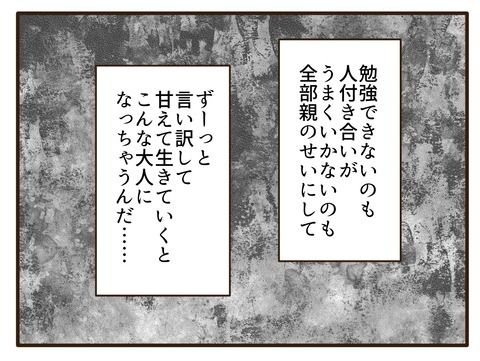 勉強できないのも
人付き合いが
うまくいかないのも
全部親のせいにして
ずーっと
言い訳して
甘えて生きていくと
こんな大人に
なっちゃうんだ……